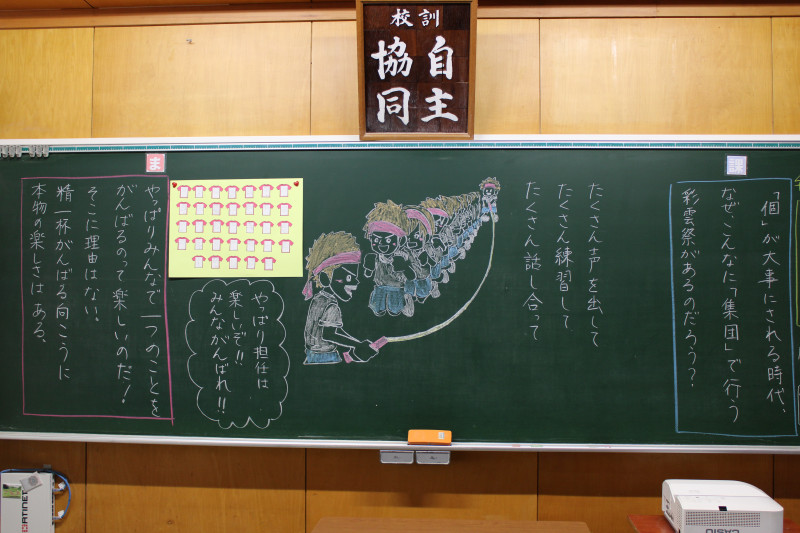 校訓
自主
協同
課
「個」が大事にされる時代、
なぜこんなに「集団」で行う
彩雲祭があるのだろう?
たくさん声を出して
たくさん練習して
たくさん話し合って
やっぱり担任は
楽しいぞ!!
みんながんばれ!!
ま
やっぱりみんなで一つのことを
がんばるのって楽しいのだ!
そこに理由はない。
精一杯がんばる向こうに
本物の楽しさはある。
FORTINET
CASIO